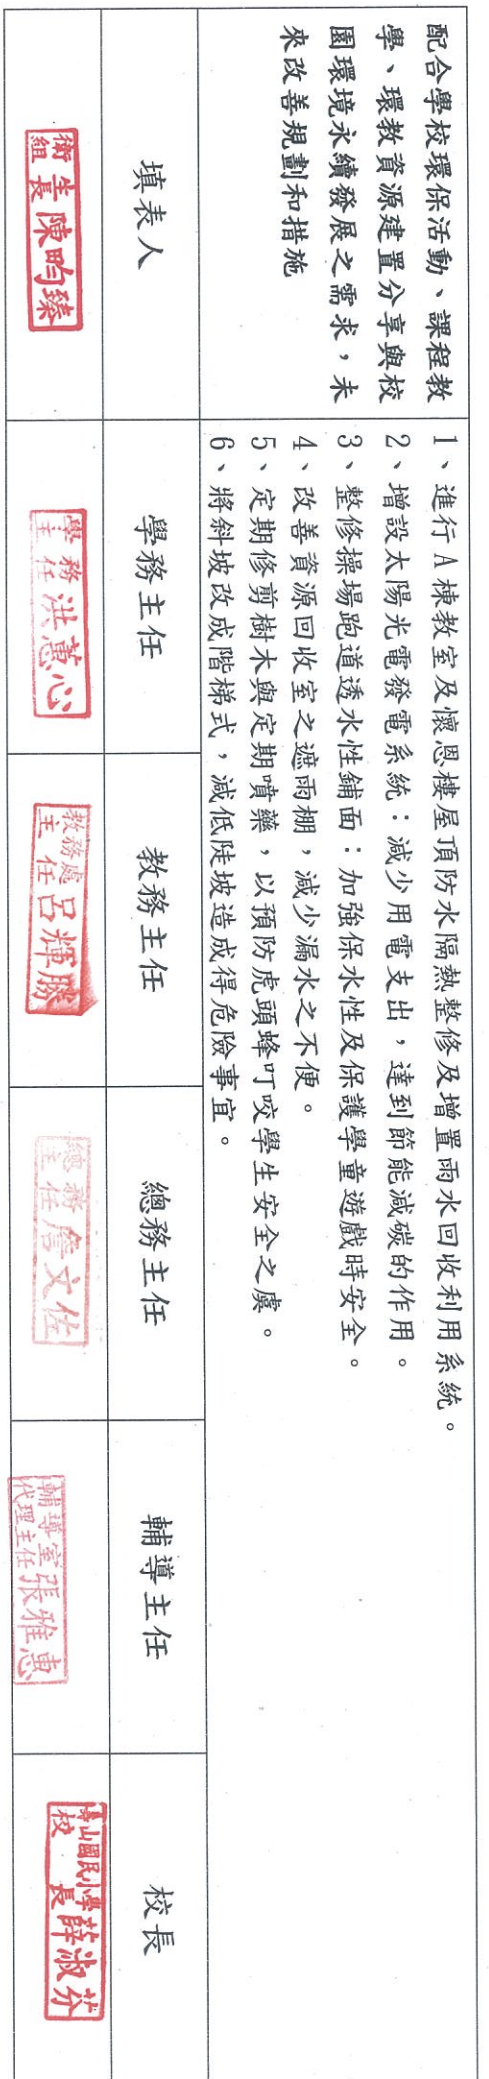 配合學校環保活動、課程教
學、環教資源建置分享與校
園環境永續發展之需求，未
來改善規劃和措施
1、進行A棟教室及懷恩樓屋頂防水隔熱整修及增置雨水回收利用系統。
2、增設太陽光電發電系統：減少用電支出，達到節能減碳的作用。
3、整修操場跑道透水性鋪面：加強保水性及保護學童遊戲時安全。
4、改善資源回收室之遮雨棚，減少漏水之不便。
5、定期修剪樹木與定期噴藥，以預防虎頭蜂叮咬學生安全之虞。
6、將斜坡改成階梯式，減低陡坡造成得危險事宜。
填表人
學務主任
教務主任
總務主任
輔導主任
校長
衛生組長陳昀臻
學務主任洪蕙心
教務處主任呂輝勝
總務主任詹文佐
輔導室代理主任張雅惠
山國民小學校長薛淑芬